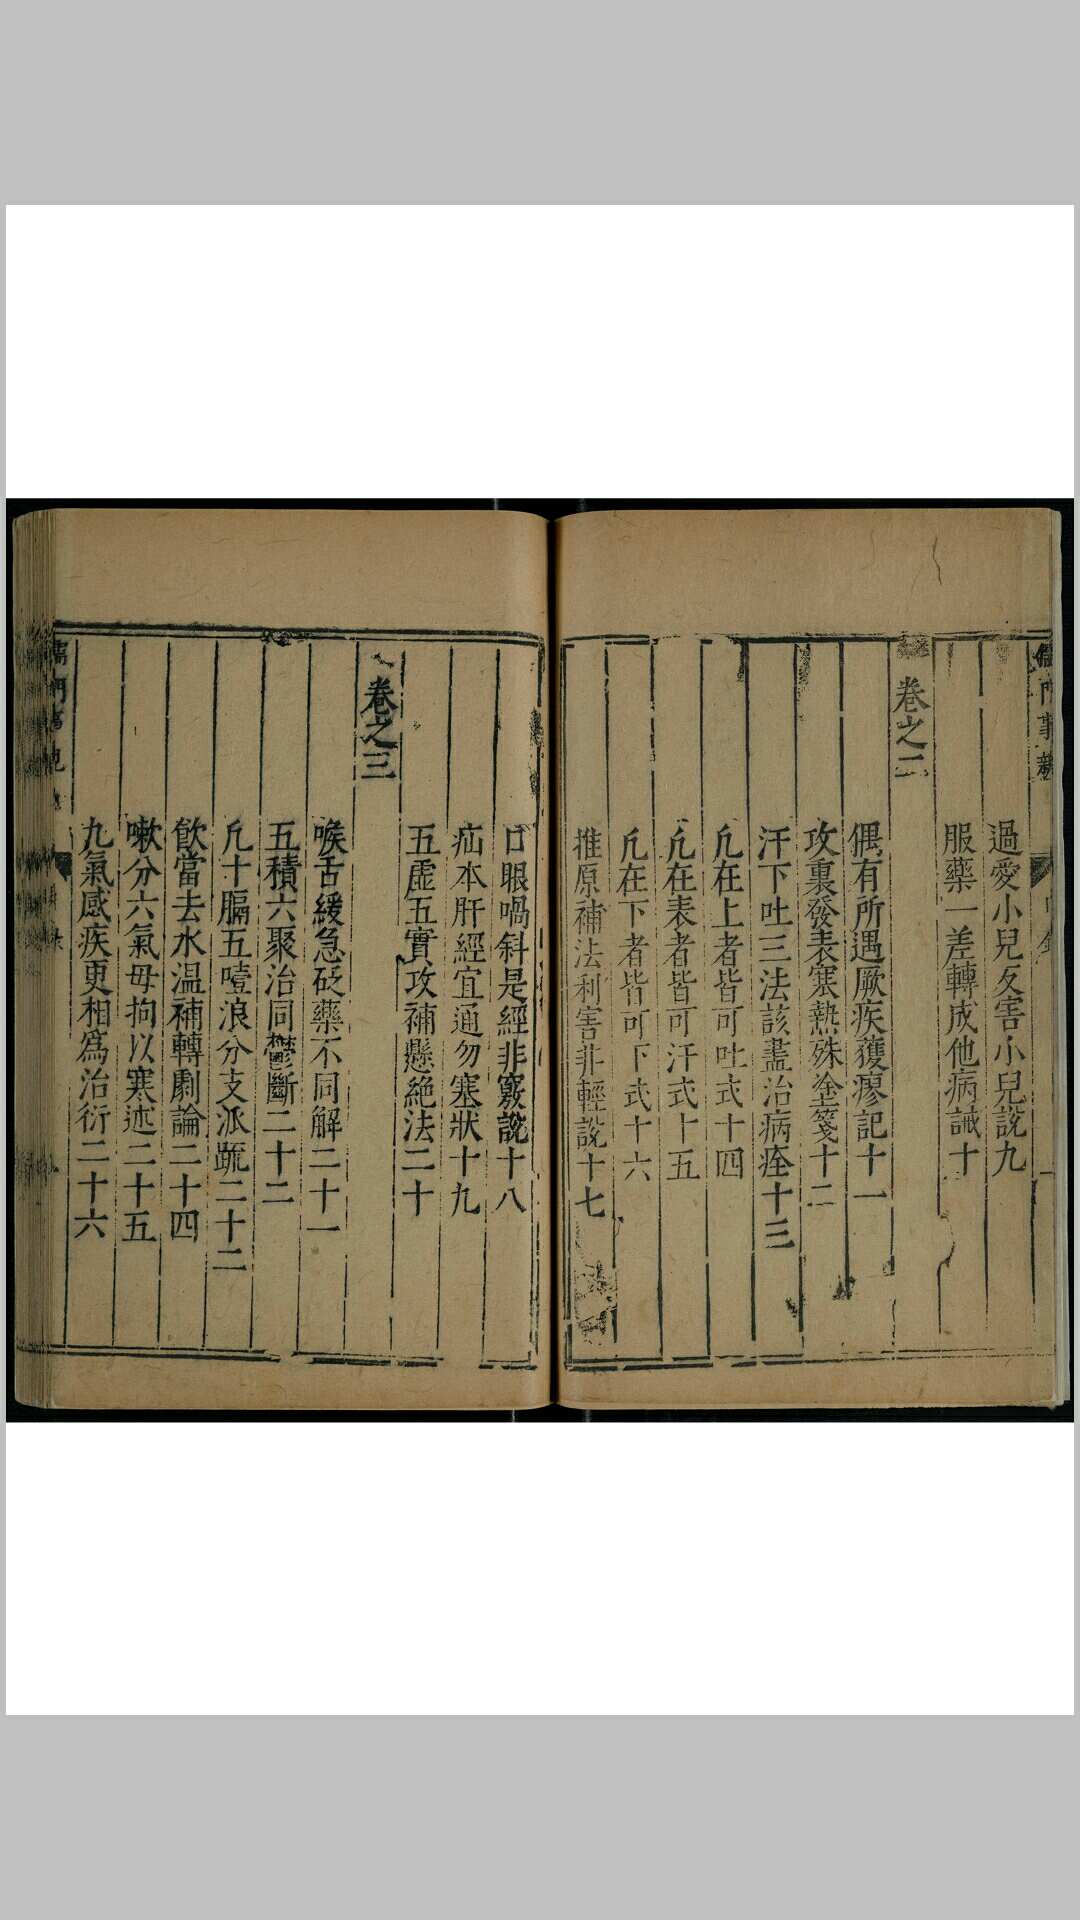 儒門事親
過愛小兒反害小兒說九
服藥一差轉成他病誡十
卷之二
偶有所遇厥疾獲瘳記十一
攻裏發表寒熱殊塗箋十二
汗下吐三法該盡治病痊十三
凢在上者皆可吐式十四
凢在表者皆可汗式十五
凢在下者皆可下式十六
推原補法利害非輕說十七
口眼喎斜是經非竅說十八
疝本肝經宜通勿塞狀十九
五虛五實攻補懸絶法二十
卷之三
喉舌緩急砭藥不同解二十一
五積六聚治同鬱斷二十二
凢十膈五噎浪分支派䟽二十二
飲當去水温補轉劇論二十四
嗽分六氣毋拘以寒述二十五
九氣感疾更相爲治衍二十六